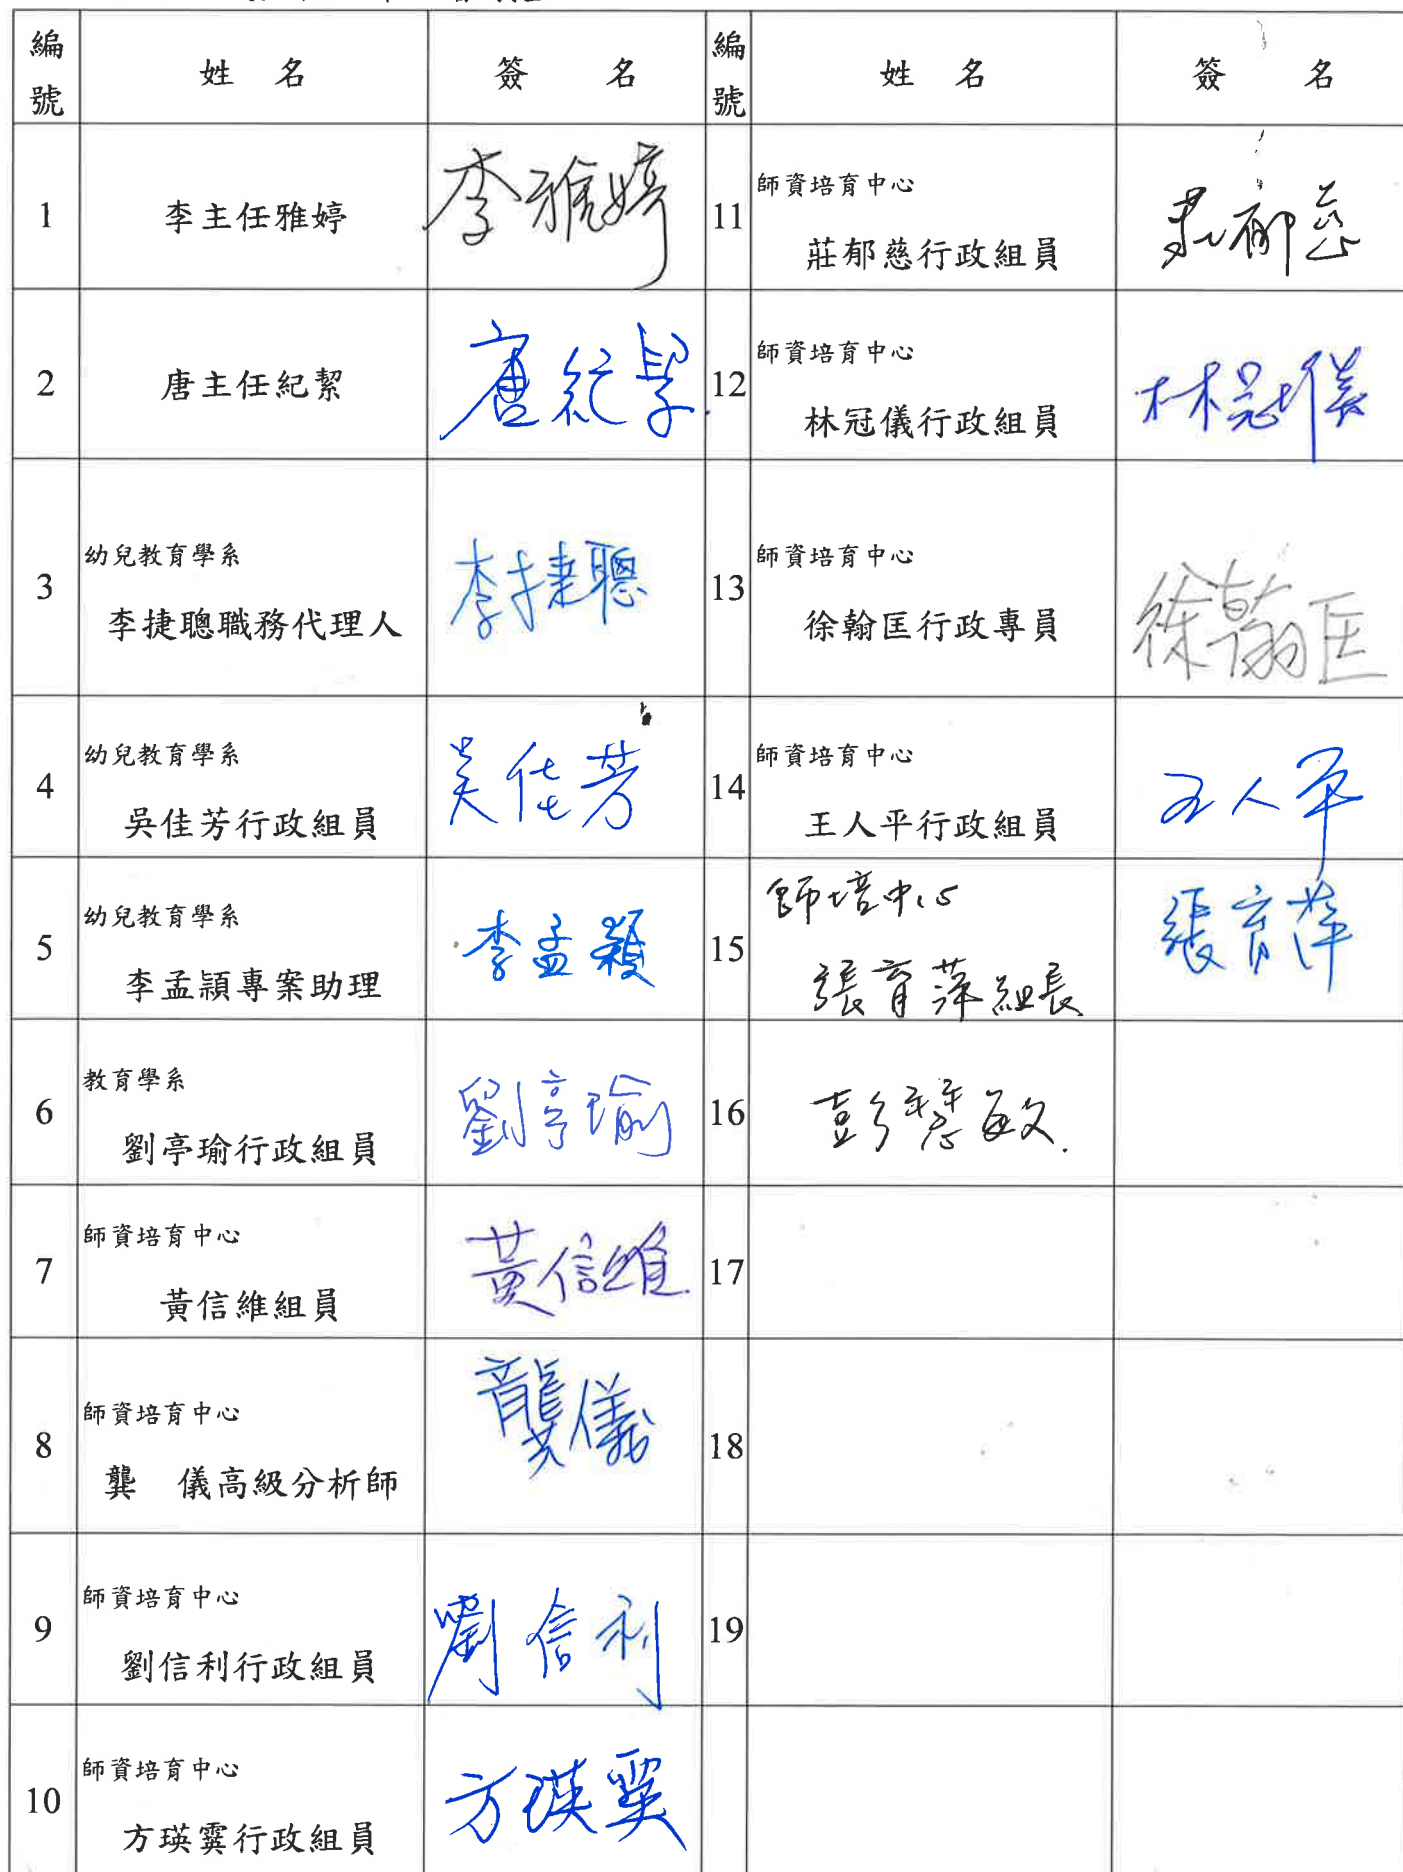 編號 姓名 簽名 編號 姓名 簽名
1 李主任雅婷 李雅婷 11 師資培育中心
莊郁慈行政組員 莊郁慈
2 唐主任紀絜 唐紀絜 12 師資培育中心
林冠儀行政組員 林冠儀
3 幼兒教育學系
李捷聰職務代理人 李捷聰 13 師資培育中心
徐翰匡行政專員 徐翰匡
4 幼兒教育學系
吳佳芳行政組員 吳佳芳 14 師資培育中心
王人平行政組員 王人平
5 幼兒教育學系
李孟頴專案助理 李孟頴 15 師培中心
張育萍組長 張育萍
6 教育學系
劉亭瑜行政組員 劉亭瑜 16 彭慧敏
7 師資培育中心
黃信維組員 黃信維 17
8 師資培育中心
龔 儀高級分析師 龔儀 18
9 師資培育中心
劉信利行政組員 劉信利 19
10 師資培育中心
方瑛霙行政組員 方瑛霙